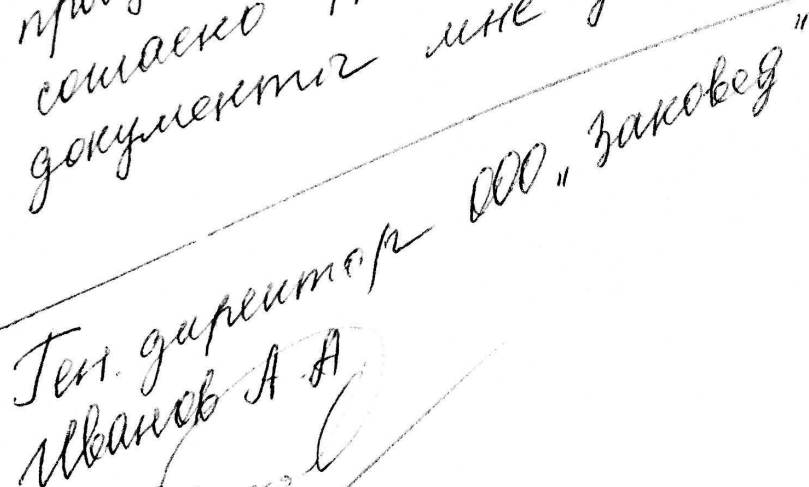 согласно
документы мне
Ген. директор ООО „Заковед"
Иванов А.А